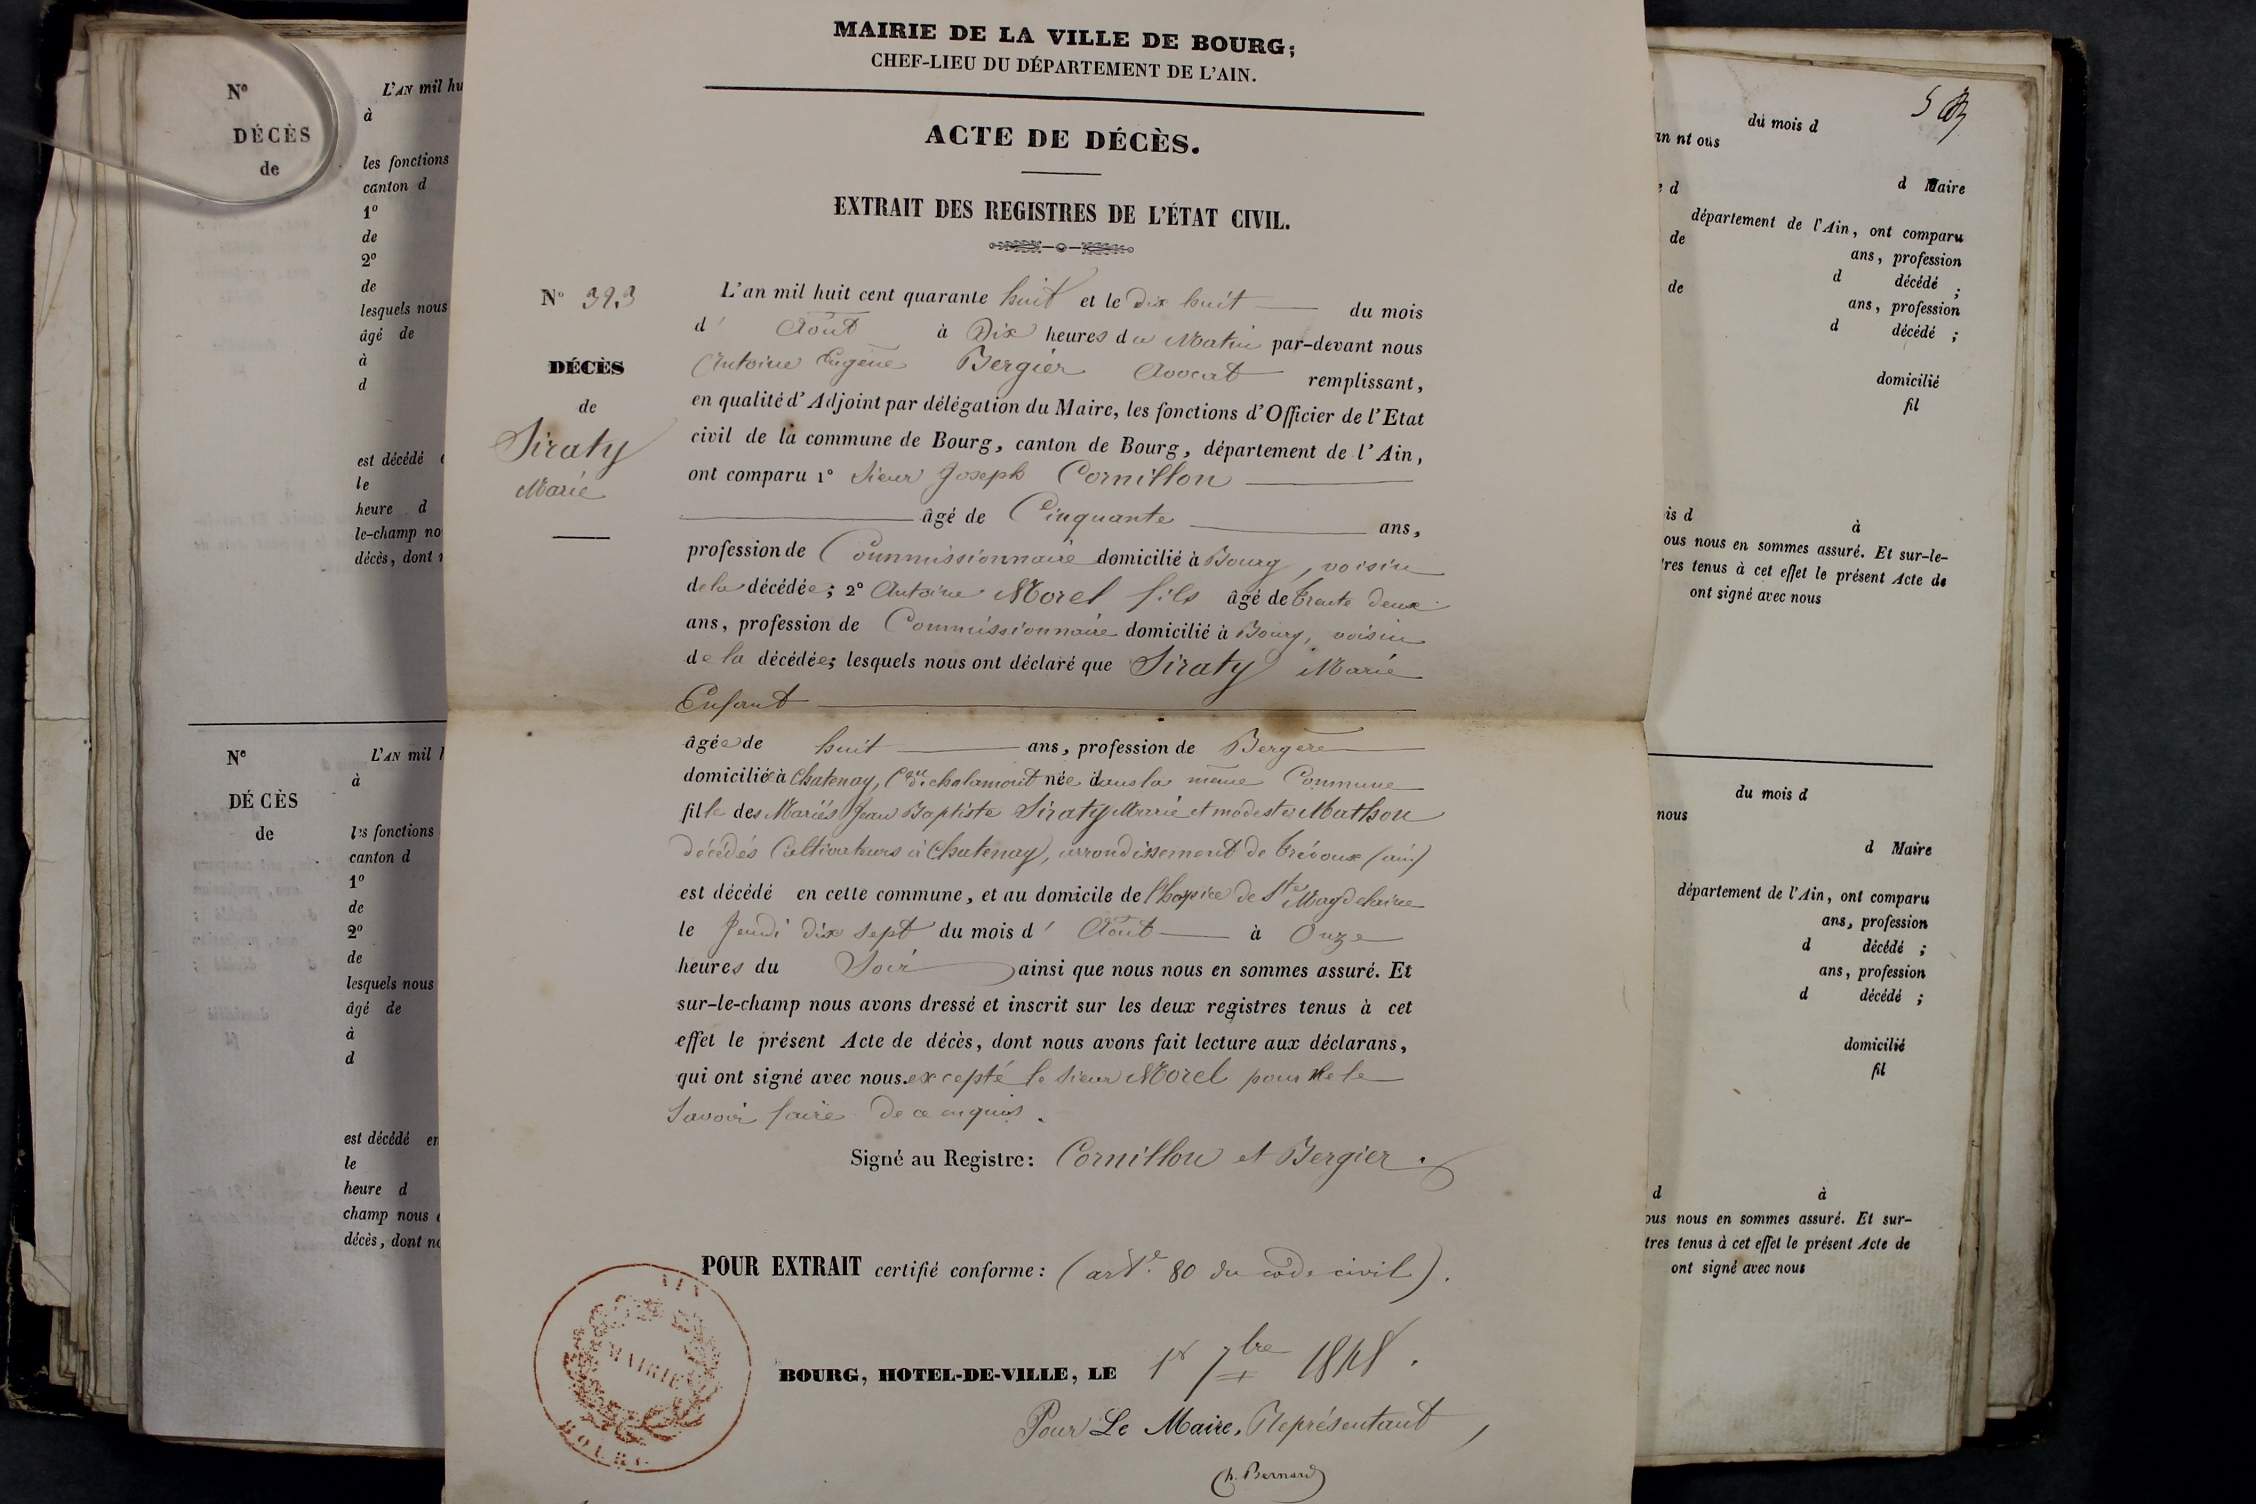 MAIRIE DE LA VILLE DE BOURG;
CHEF-LIEU DU DÉPARTEMENT DE L'AIN.
ACTE DE DÉCÈS.
EXTRAIT DES REGISTRES DE L'ÉTAT CIVIL.
N° 323
DÉCÈS
de
Siraty
Marie
L'an mil huit cent quarante huit et le Dix huit du mois
d' Aout à Dix heures du Matin par-devant nous
Antoine Eugène Bergier Avocat remplissant,
en qualité d'Adjoint par délégation du Maire, les fonctions d'Officier de l'Etat
civil de la commune de Bourg, canton de Bourg, département de l'Ain,
ont comparu 1° Sieur Joseph Cornillon
âgé de Cinquante ans,
profession de Commissionnaire domicilié à Bourg, voisin
de la décédée; 2° Antoine Morel fils âgé de trente deux
ans, profession de Commissionnaire domicilié à Bourg, voisin
de la décédée; lesquels nous ont déclaré que Siraty Marie
Enfant
âgée de huit ans, profession de Bergère
domiciliée à Chatenay, Con de chalamont née dans la même Commune
fille des Mariés Jean Baptiste Siraty Marie et modeste Mathon
décédés Cultivateurs à Chatenay, arrondissement de trévoux (ain)
est décédé en cette commune, et au domicile de l'hospice de Ste Magdelaine
le Jeudi dix sept du mois d' Août à Onze
heures du Soir ainsi que nous nous en sommes assuré. Et
sur-le-champ nous avons dressé et inscrit sur les deux registres tenus à cet
effet le présent Acte de décès, dont nous avons fait lecture aux déclarans,
qui ont signé avec nous. excepté le sieur Morel pour ne le
savoir faire de ce enquis.
Signé au Registre: Cornillon et Bergier.
POUR EXTRAIT certifié conforme: (arte. 80 du code civil).
BOURG, HOTEL-DE-VILLE, LE 1r 7bre 1848.
Pour Le Maire, Représentant,
h. Bernard
AIN
MAIRIE
BOURG
N°
DÉCÈS
de
L'AN mil hu
à
les fonctions
canton d
1°
de
2°
de
lesquels nous
âgé de
à
d
est décédé
le
heure d
le-champ no
décès, dont
N°
DÉCÈS
de
L'AN mil
à
les fonctions
canton d
1°
de
2°
de
lesquels nous
âgé de
à
d
est décédé en
le
heure d
champ nous
décès, dont no
du mois d
nous
d Maire
département de l'Ain, ont comparu
de ans, profession
d décédé ;
de ans, profession
d décédé ;
domicilié
fil
is d à
ous nous en sommes assuré. Et sur-le-
tres tenus à cet effet le présent Acte de
ont signé avec nous
du mois d
nous
d Maire
département de l'Ain, ont comparu
ans, profession
d décédé ;
ans, profession
d décédé ;
domicilié
fil
d à
ous nous en sommes assuré. Et sur-
tres tenus à cet effet le présent Acte de
ont signé avec nous